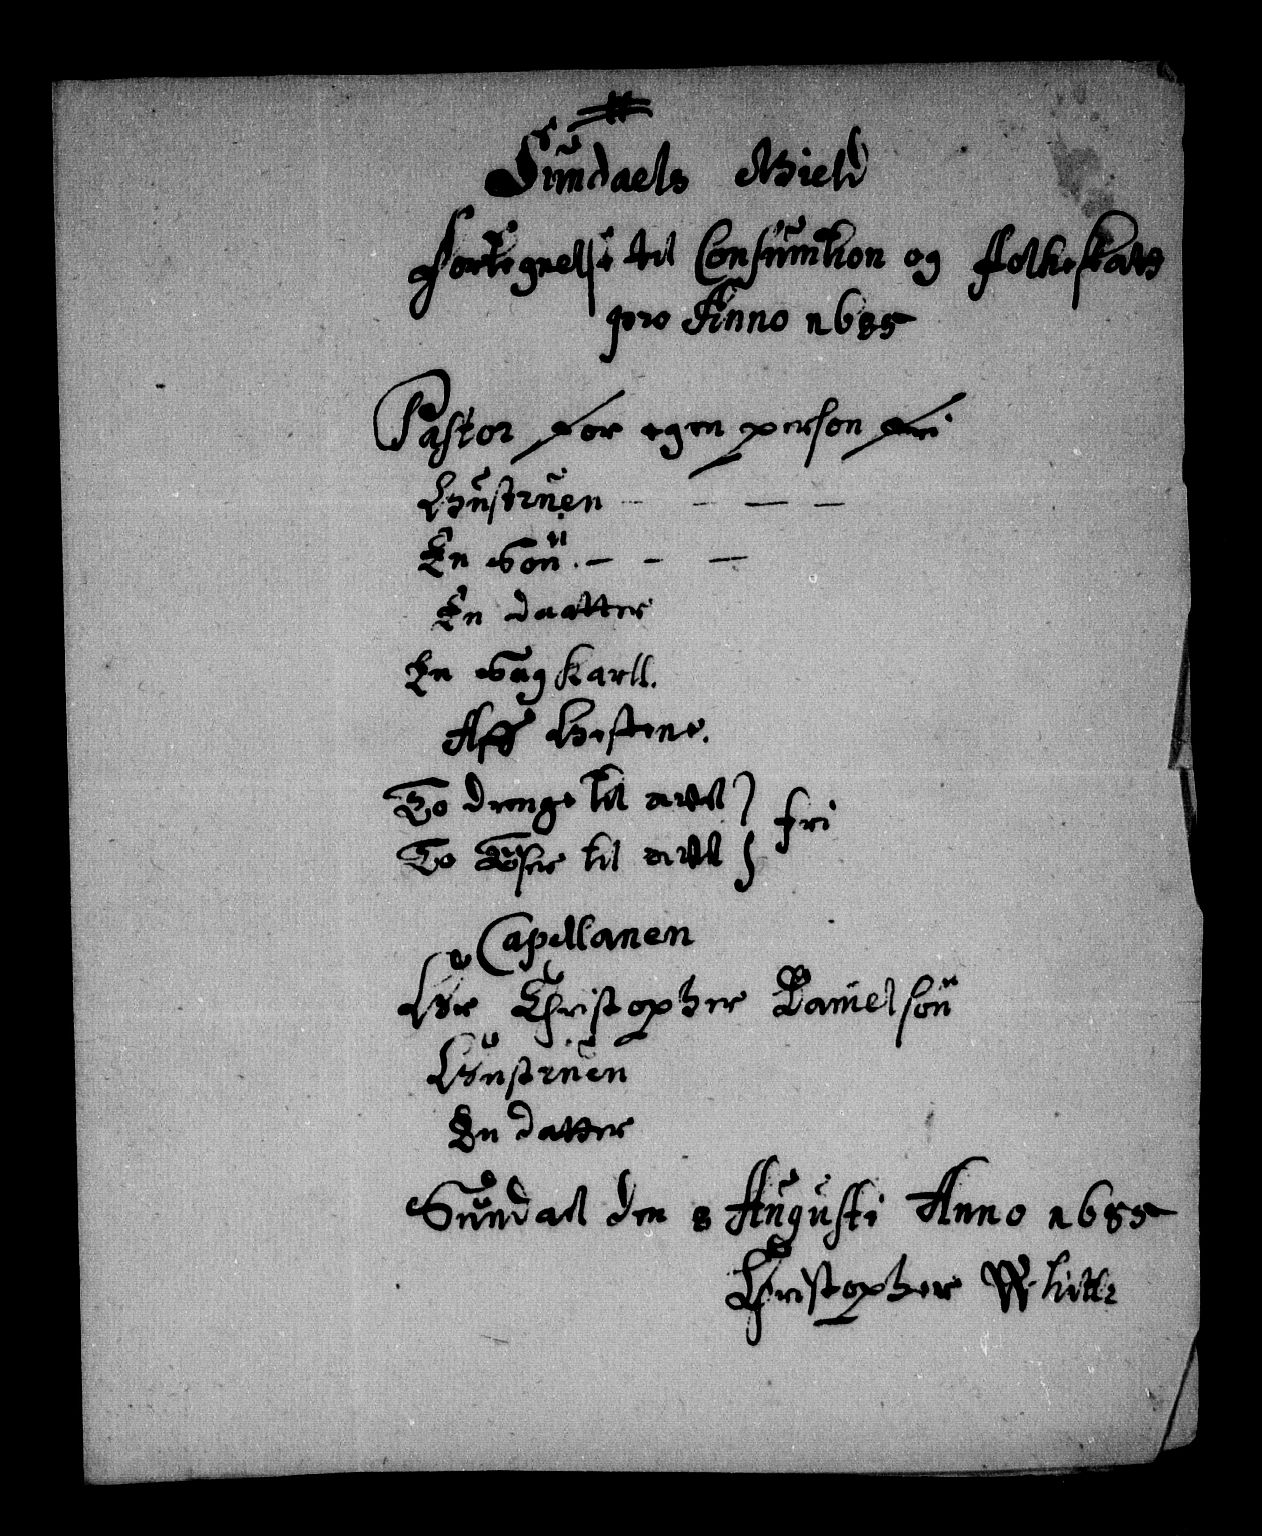 Sundaels Gield
Fortegnelse til Consumtion og Folkeskatt
pro Anno 1685
Pastor for egen person fri
Hustruen - - - -
En Sön. - - -
En daatter
En Sug karll.
Aff Hestene.
To drenge til avll } fri
To Töser til avll }
Capellanen
Hr Christopher Danielsön
Hustruen
En datter
Sundal den 8 Augusti Anno 1685
Christopher